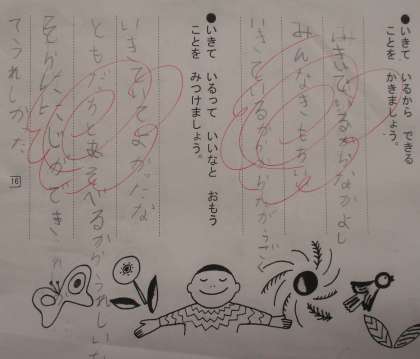 ●いきて いるから できる
ことを かきましょう。
みきいているからなかよし
みんなきもちいい
いきているからからだがうごく
●いきて いるって いいなと おもう
ことを みつけましょう。
いきていてよかったな
ともだちとあそべるからうれしいな
そらににじができ
てうれしかた
16